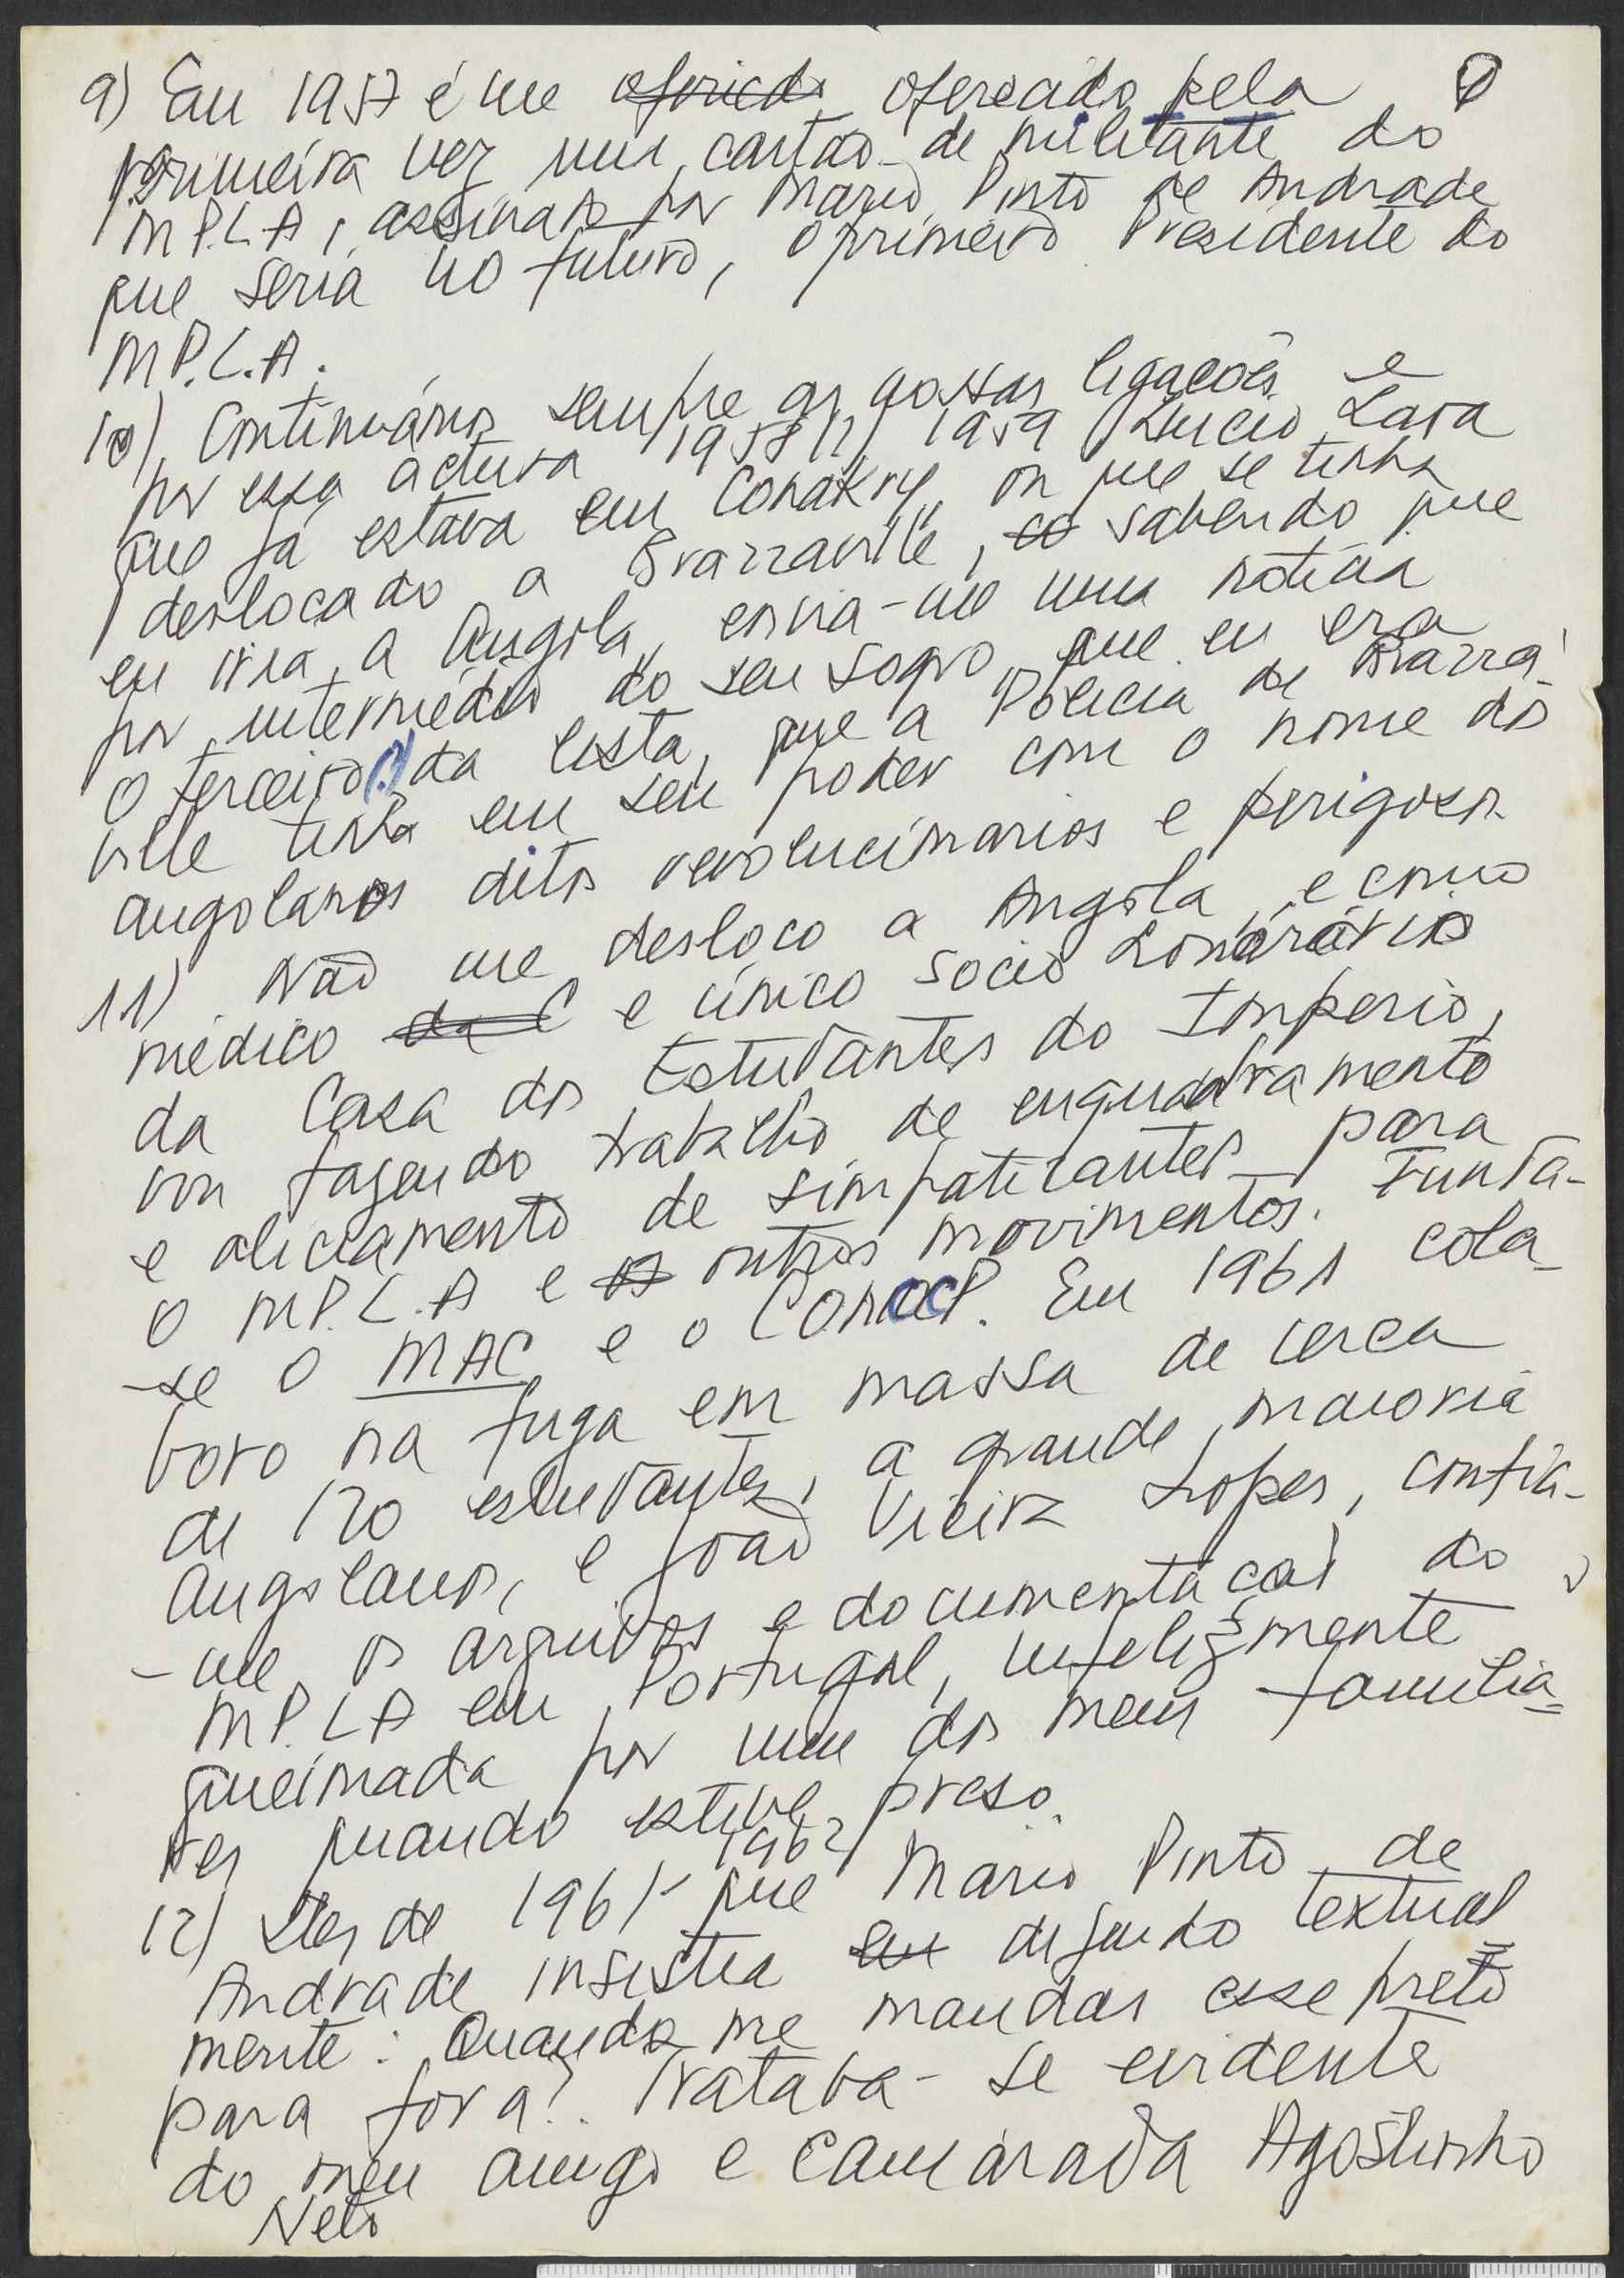 9) Em 1957 é me oferecido oferecido pela
primeira vez um cartão de militante do
M.P.L.A, assinado por Mario Pinto de Andrade
que seria no futuro, o primeiro Presidente do
M.P.L.A.
10) Continuámos sempre as nossas ligações e
por essa altura 1958/1959 Lucio Lara
que já estava em Conakry, ou que se tinha
deslocado a Brazzaville, sabendo que
eu iria a Angola, envia-me uma notícia
por intermédio do seu sogro que eu era
o terceiro (?) da lista, que a Policia de Brazza-
ville tinha em seu poder com o nome dos
angolanos ditos revolucionarios e perigosos.
11) Não me desloco a Angola, e como
médico da C e único socio honorário
da Casa dos Estudantes do Imperio,
vou fazendo trabalho de enquadramento
e aliciamento de simpatizantes para
o M.P.L.A e os outros movimentos. Funda-
-se o MAC e o CONCP. Em 1961 cola-
boro na fuga em massa de cerca
de 120 estudantes, a grande maioria
angolanos, e João Vieira Lopes, confia-
-me os arquivos e documentação do
M.P.L.A em Portugal, infelizmente
queimada por um dos meus familia-
res quando estive preso.
12) Desde 1961/1962 que Mario Pinto de
Andrade insistia em dizendo textual
mente: Quando me mandas esse preto
para fora?. Tratava-se evidente
do meu amigo e camarada Agostinho
Neto